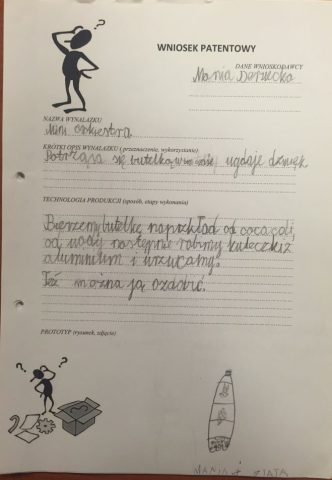 WNIOSEK PATENTOWY
DANE WNIOSKODAWCY
Mania
NAZWA WYNALAZKU
Mini orkiestra
KRÓTKI OPIS WYNALAZKU ( przeznaczenie, wykorzystanie)
Potrząsa się butelką, wydaje dźwięk
TECHNOLOGIA PRODUKCJI (sposób, etapy wykonania)
Bierzemy butelkę naprzykład od coca coli,
od wody następnie robimy kuleczki z
aluminium i wrzucamy.
Też można ją ozdobić.
PROTOTYP (rysunek, zdjęcie)
MANIA +